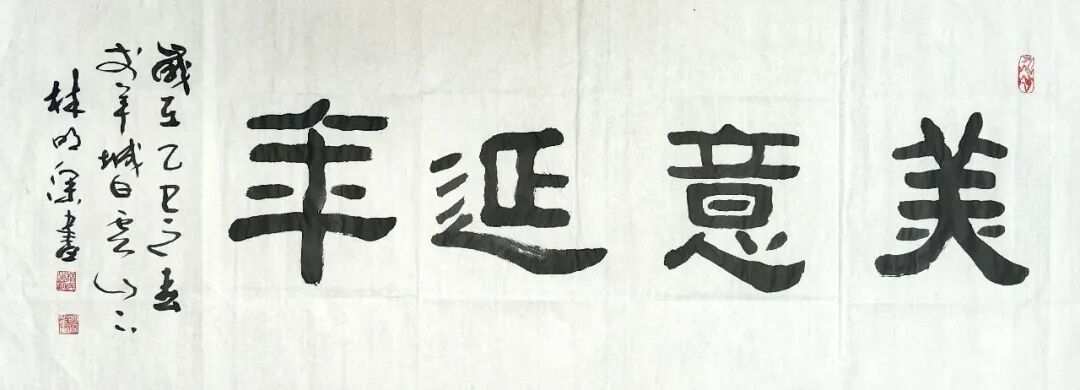 美意延年
歲在乙巳之春
於羊城白雲山下
林明渠書